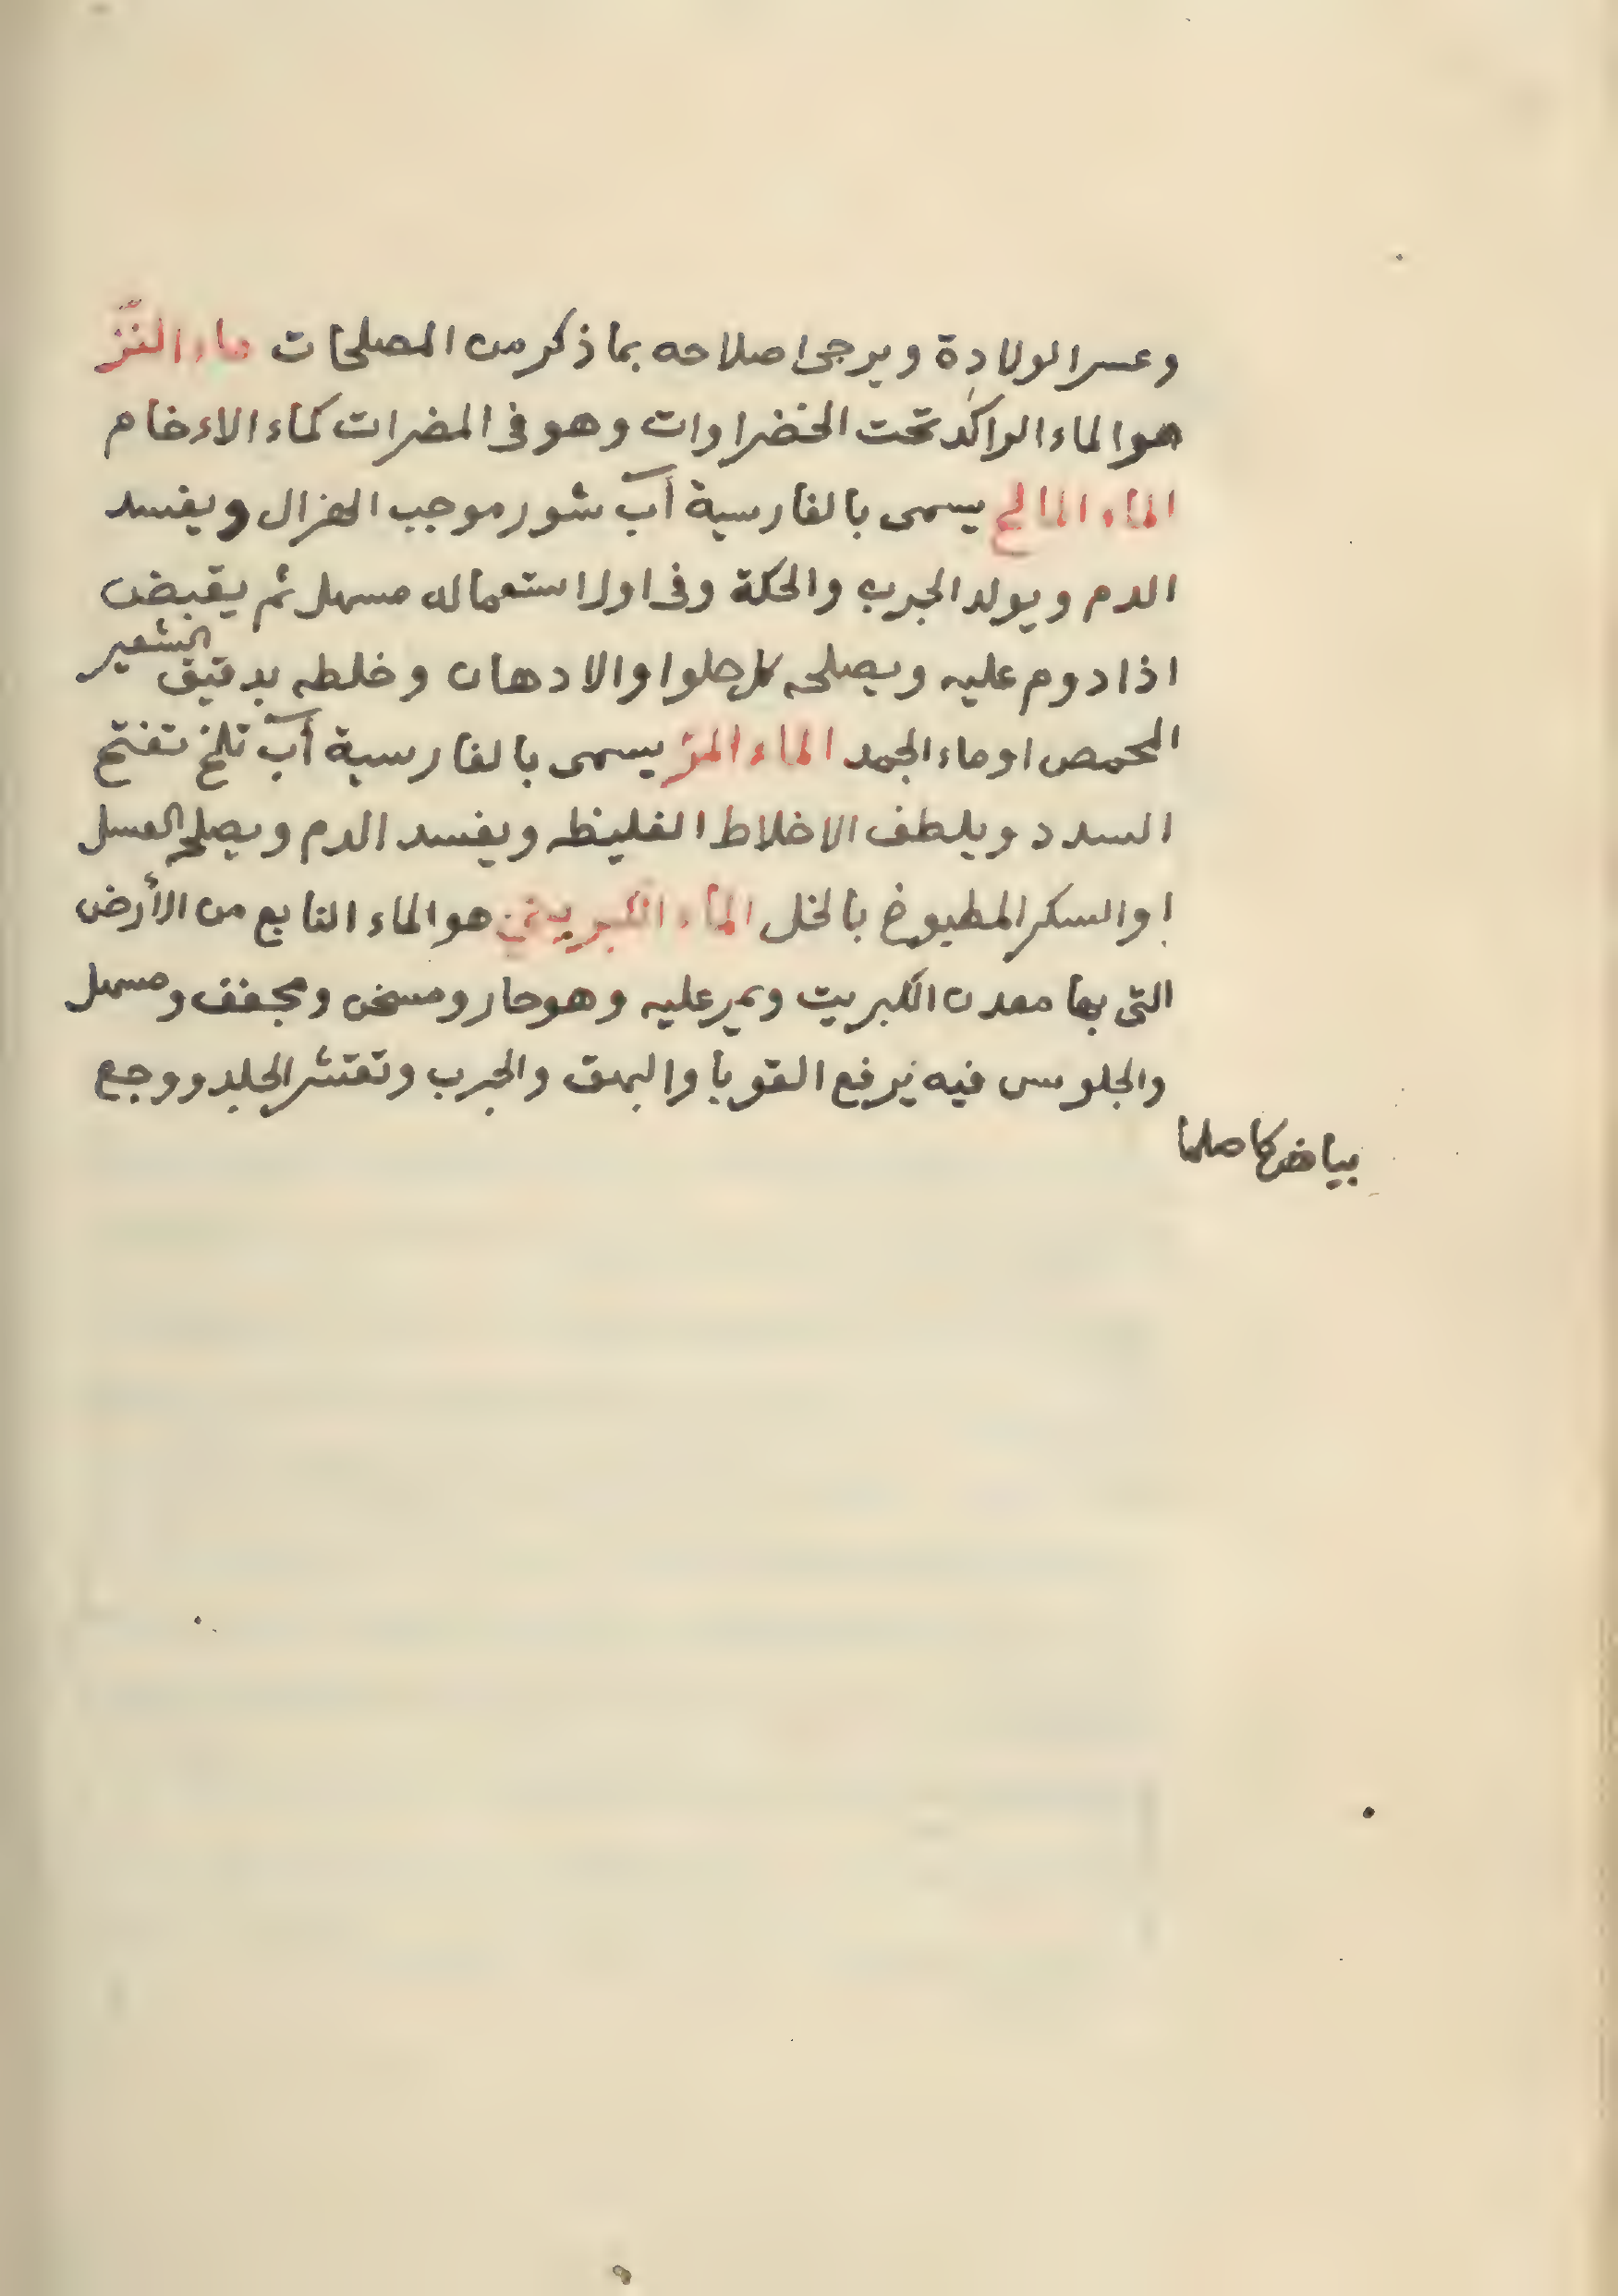 وعسر الولادة ويرجى اصلاحه بما ذكر من المصلحات ماء النَّز
هو الماء الراكد تحت الخضراوات وهو فى المضرات كماء الاءخام
الماء المالح يسمى بالفارسية آب شور موجب الهزال ويفسد
الدم ويولد الجرب والحكة وفى اول استعماله مسهل ثم يقبض
اذا دوم عليه ويصلحه كل حلوا والادهان وخلطه بدقيق الشعير
المحمص او ماء الجمد الماء المرّ يسمى بالفارسية آب تلخ تفتح
السدد ويلطف الاخلاط الغليظه ويفسد الدم ويصلحه العسل
او السكر المطبوخ بالخل الماء الكبريتى هو الماء النابع من الأرض
التى بها معدن الكبريت ويمر عليه وهو حار ومسخن ومجفف ومسهل
والجلوس فيه يرفع القوبا والبهق والجرب وتقشر الجلد ووجع
بياض كاصلها